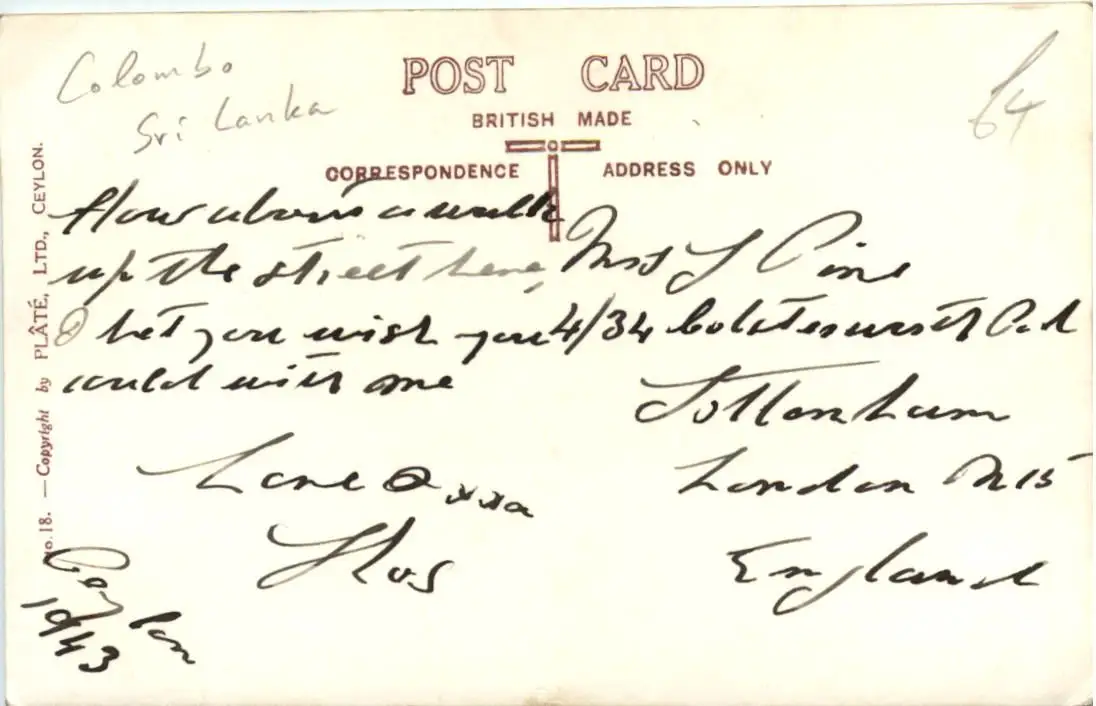 Colombo
Sri Lanka
64
POST CARD
BRITISH MADE
CORRESPONDENCE ADDRESS ONLY
No. 18. — Copyright by PLÂTÉ, LTD., CEYLON.
How about a walk
up the street here,
I bet you wish you
could with me
Love
Ceylon
1943
Mrs L Pine
4/34
Tottenham
London N15
England